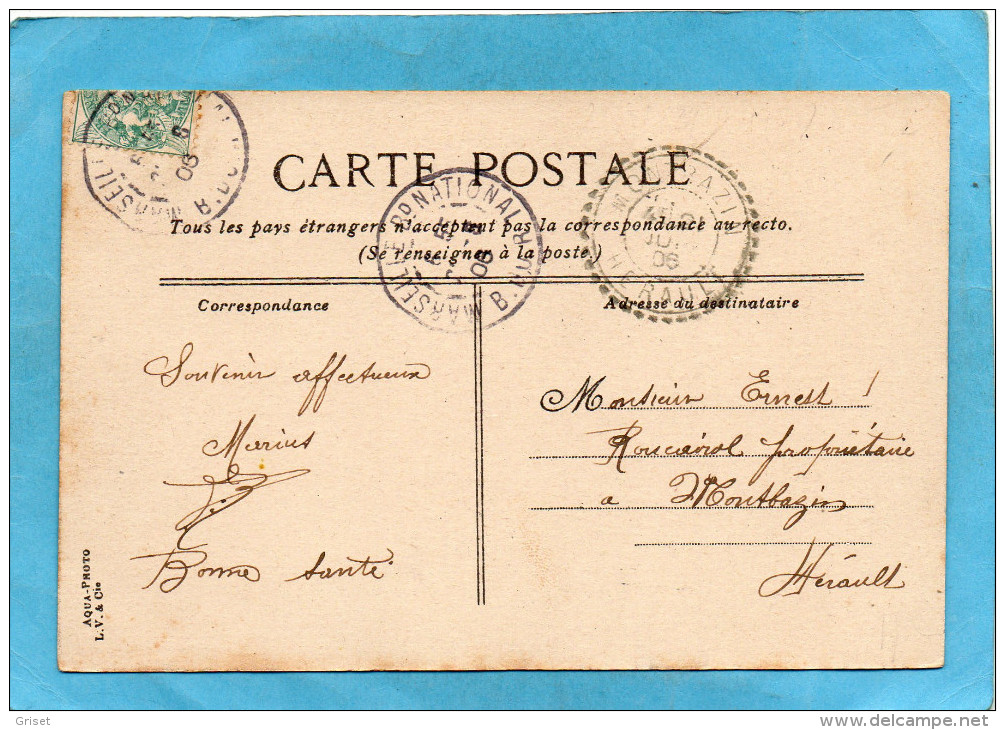 CARTE POSTALE
Tous les pays étrangers n'acceptent pas la correspondance au recto.
(Se renseigner à la poste.)
Correspondance
Adresse du destinataire
Souvenir affectueux
Marius
Bonne santé
Monsieur Ernest
Roucairol propriétaire
a Montbazin
Hérault
MARSEILLE BD NATIONAL
B. DU R.
06
MARSEILLE
B. DU R.
06
MONTBAZIN
06
HERAULT
AQUA-PHOTO
L. V. & Cie
Griset
www.delcampe.net